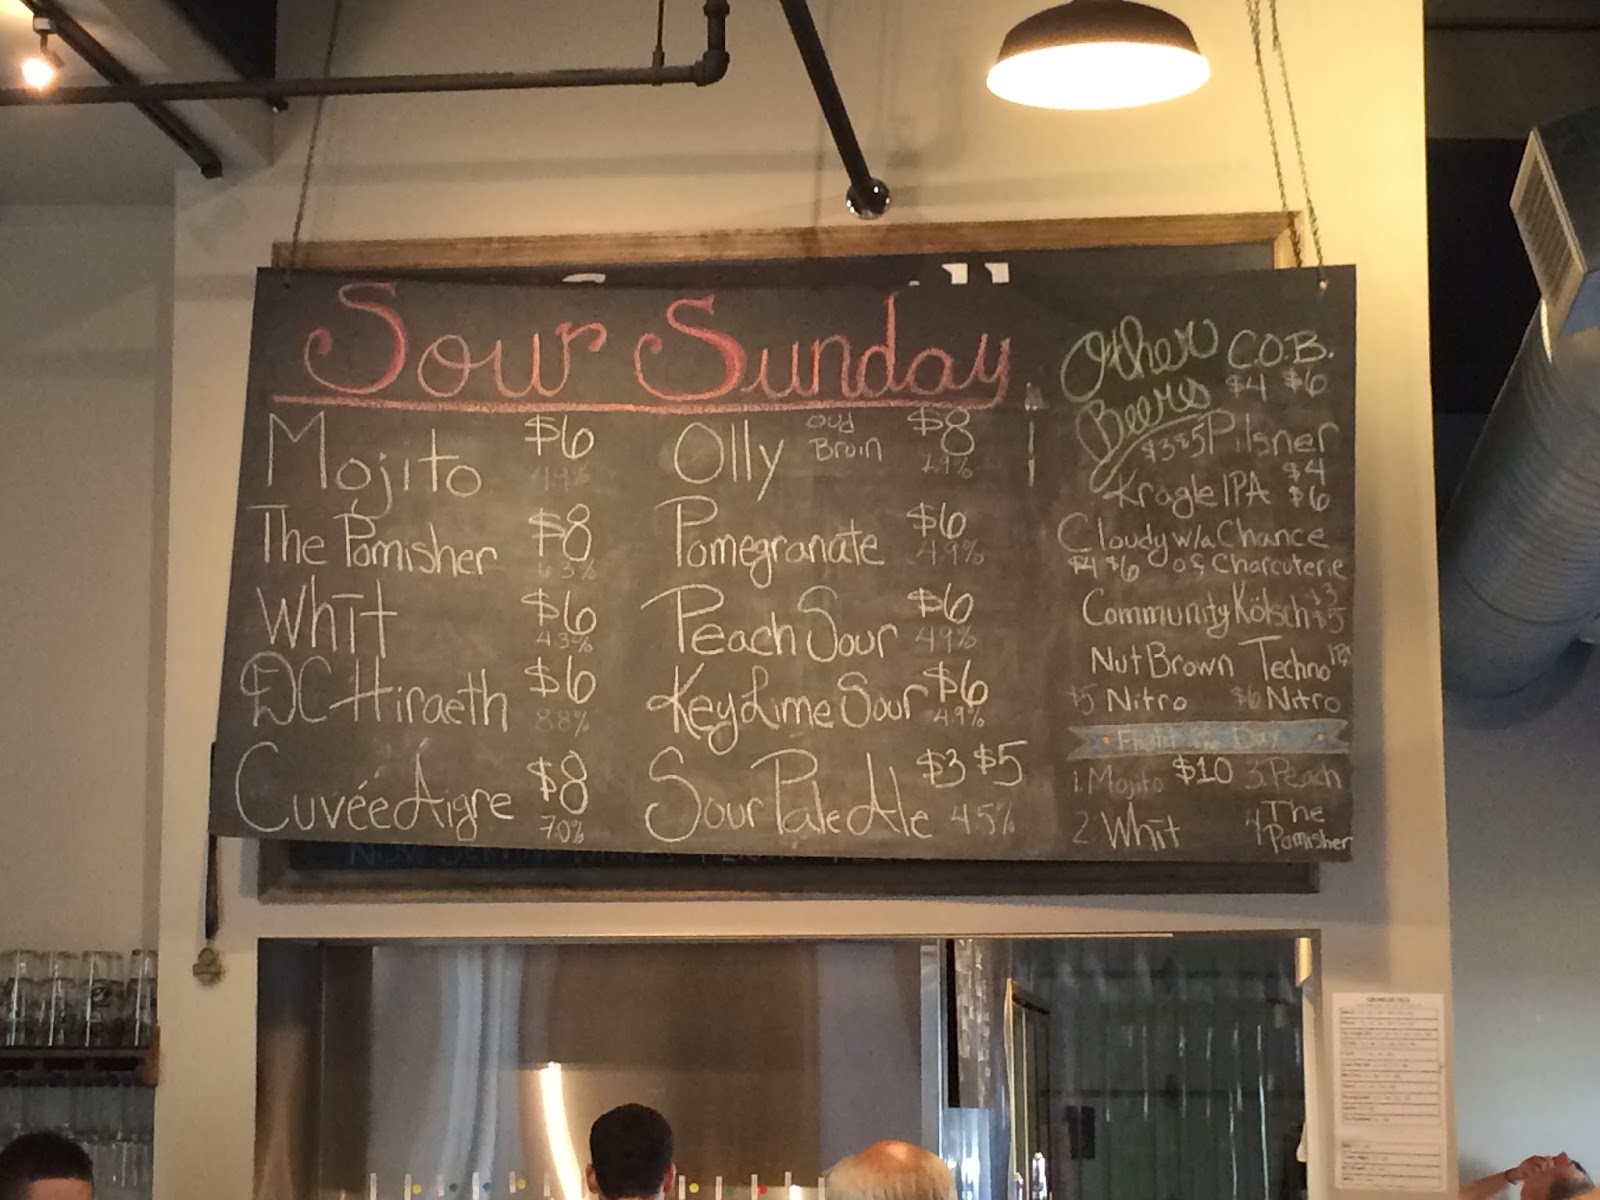 Sour Sunday
Mojito $6
4.9%
The Pomisher $8
6.3%
Whīt $6
4.3%
DC Hiraeth $6
8.8%
Cuvée Aigre $8
7.0%
Olly Oud Bruin $8
7.9%
Pomegranate $6
4.9%
Peach Sour $6
4.9%
Key Lime Sour $6
4.9%
Sour Pale Ale $3 $5
4.5%
Other Beers
C.O.B.
$4 $6
$3 $5 Pilsner
Kragle IPA $4 $6
Cloudy w/a Chance
$4 $6 of Charcuterie
Community Kölsch $3 $5
Nut Brown Techno IPA
$5 Nitro $6 Nitro
Flight of the Day
1. Mojito $10 3. Peach
2. Whīt 4. The Pomisher